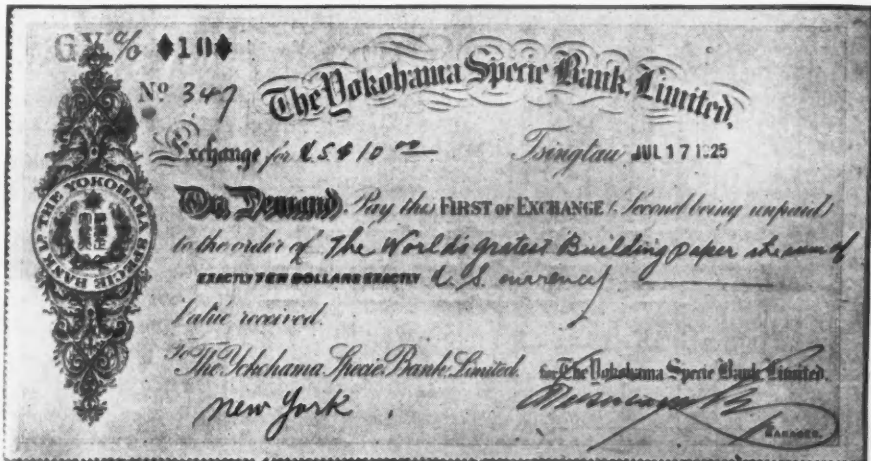 GY % ♦10♦
No 347
The Yokohama Specie Bank, Limited.
Exchange for U.S. $10 00
Tsingtau JUL 17 1925
On Demand. Pay this FIRST OF EXCHANGE (Second being unpaid)
to the order of The World's gratest Building paper the sum of
EXACTLY TEN DOLLARS EXACTLY U.S. currency
Value received.
To The Yokohama Specie Bank, Limited. for The Yokohama Specie Bank, Limited.
New York.
MANAGER.
THE YOKOHAMA SPECIE BANK LD